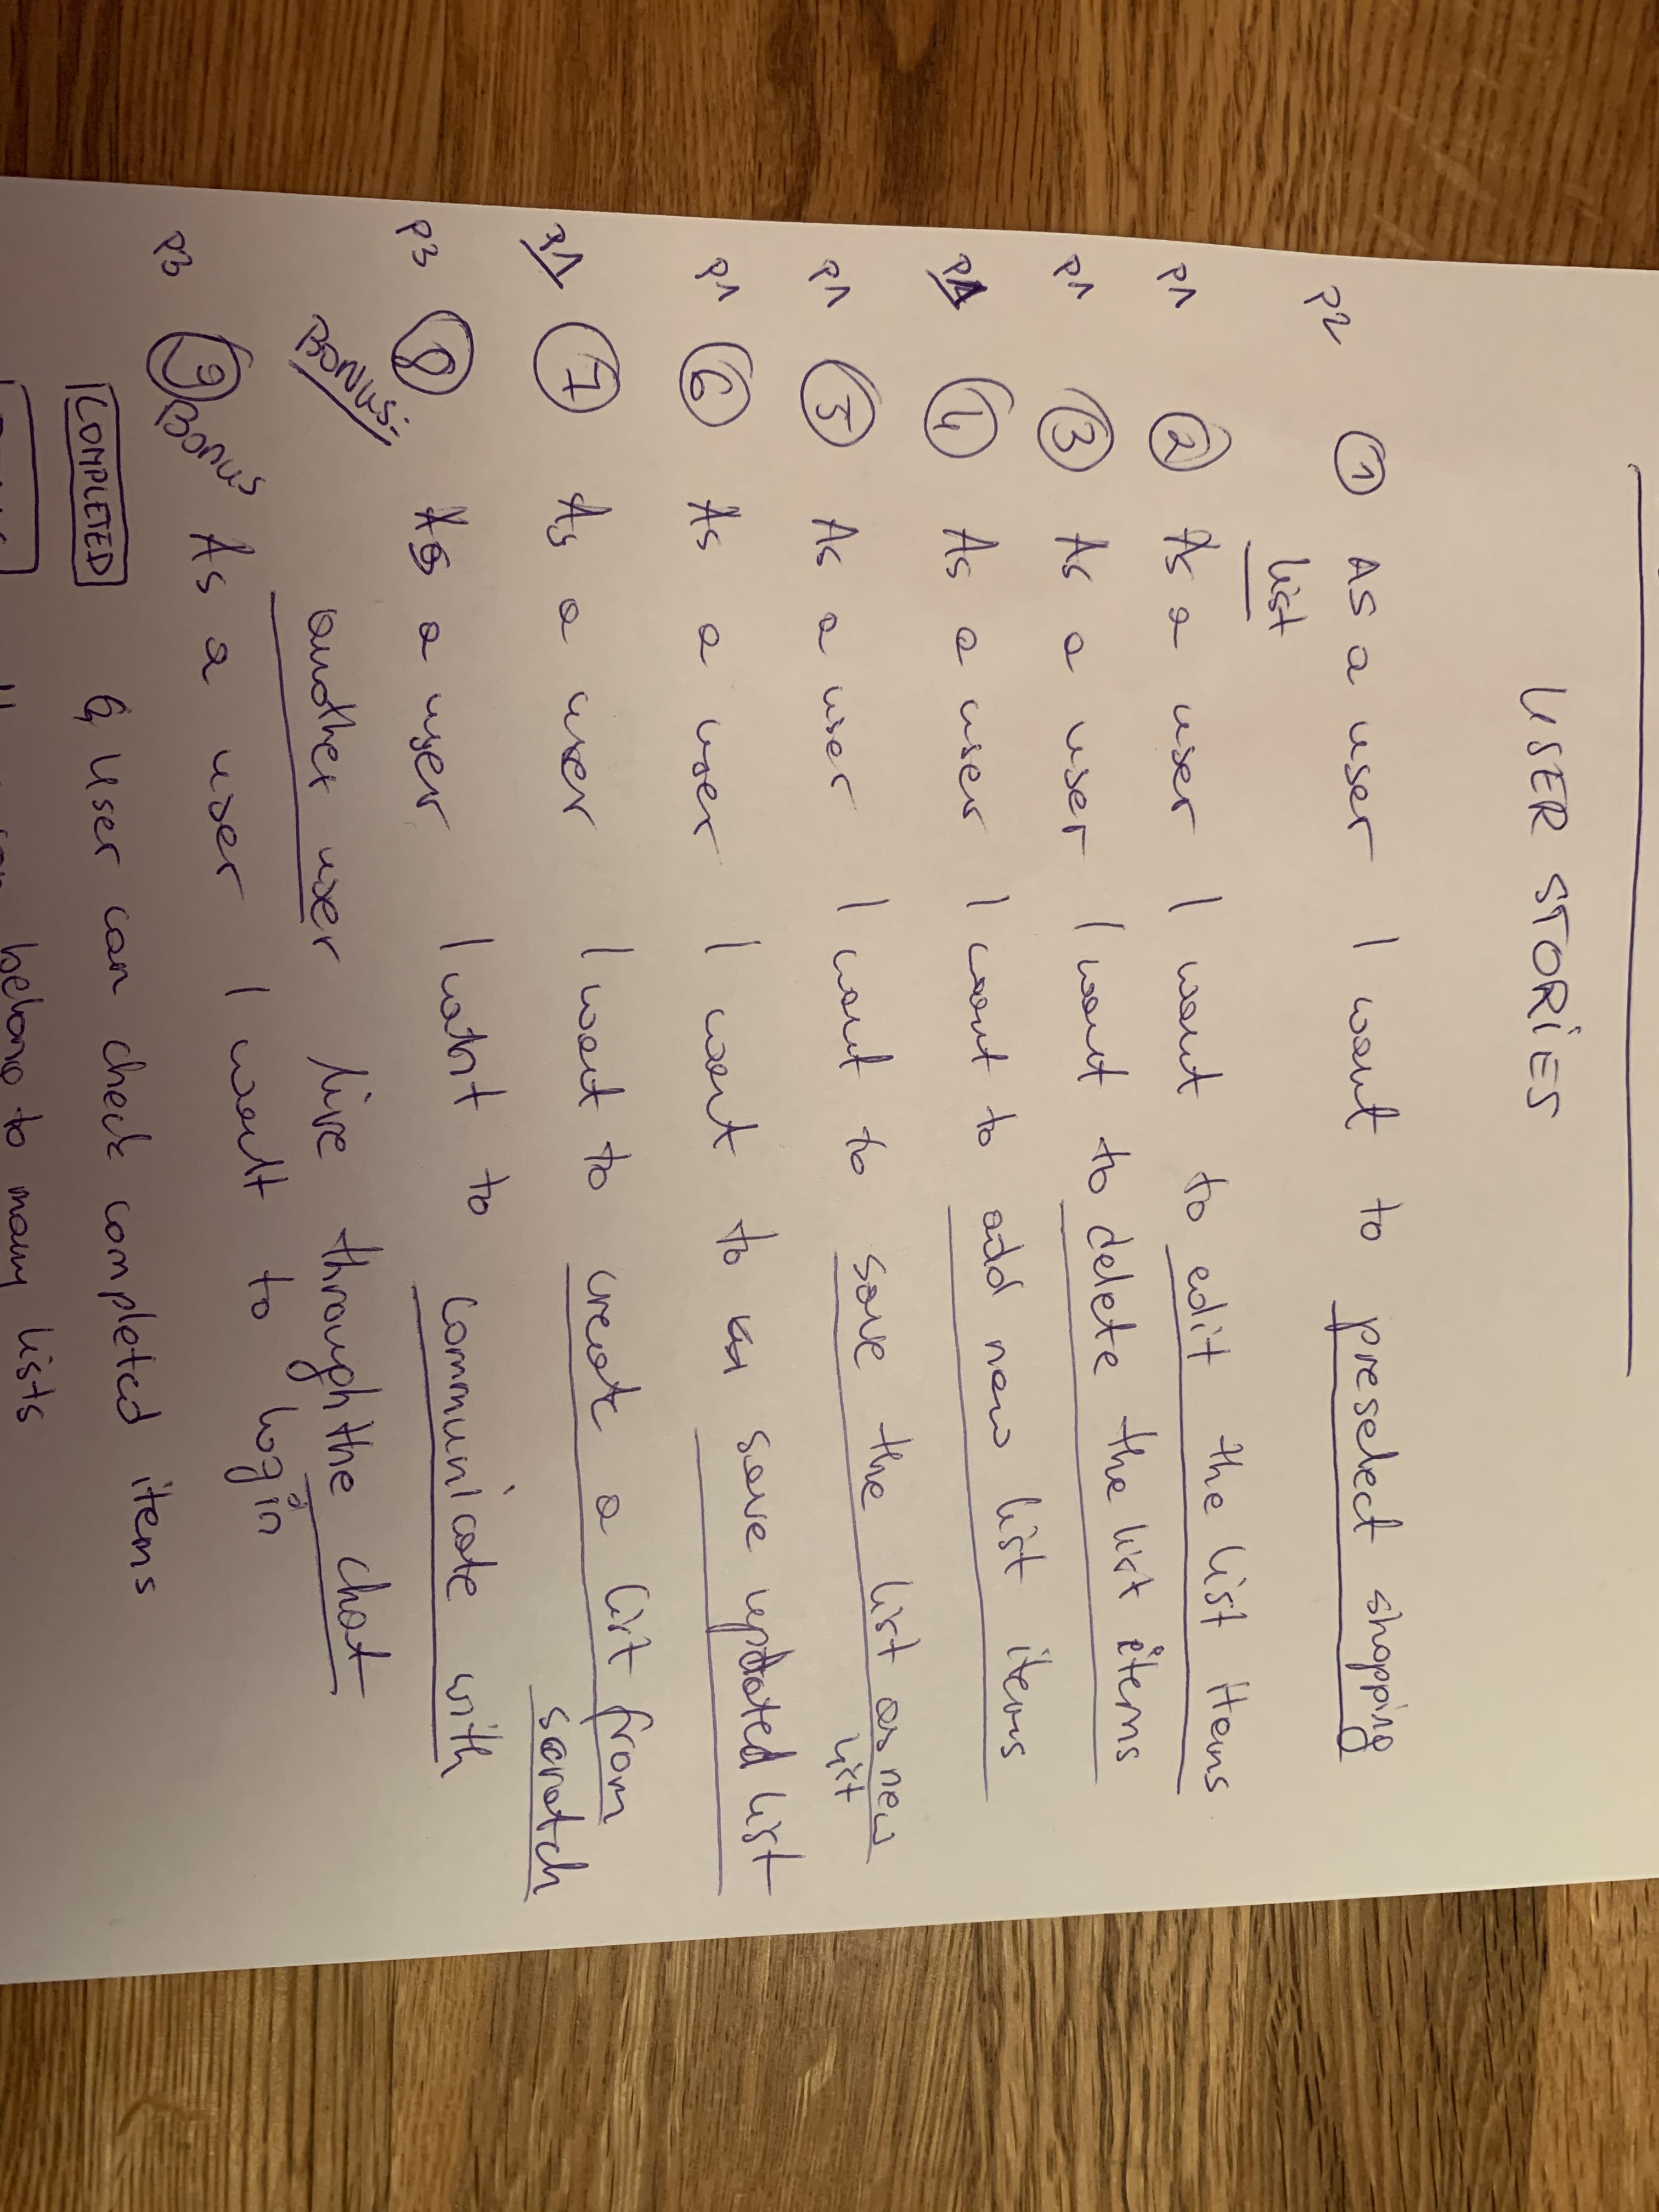 USER STORIES
P2 1 AS a user I want to preselect shopping
list
P1 2 As a user I want to edit the list items
P1 3 As a user I want to delete the list items
P1 4 As a user I want to add new list items
P1 5 As a user I want to save the list as new
list
P1 6 As a user I want to save updated list
P1 7 As a user I want to create a list from
scratch
P3 8 As a user I want to communicate with
BONUS: another user live through the chat
P3 9 BONUS As a user I want to log in
COMPLETED & User can check completed items
belong to many lists